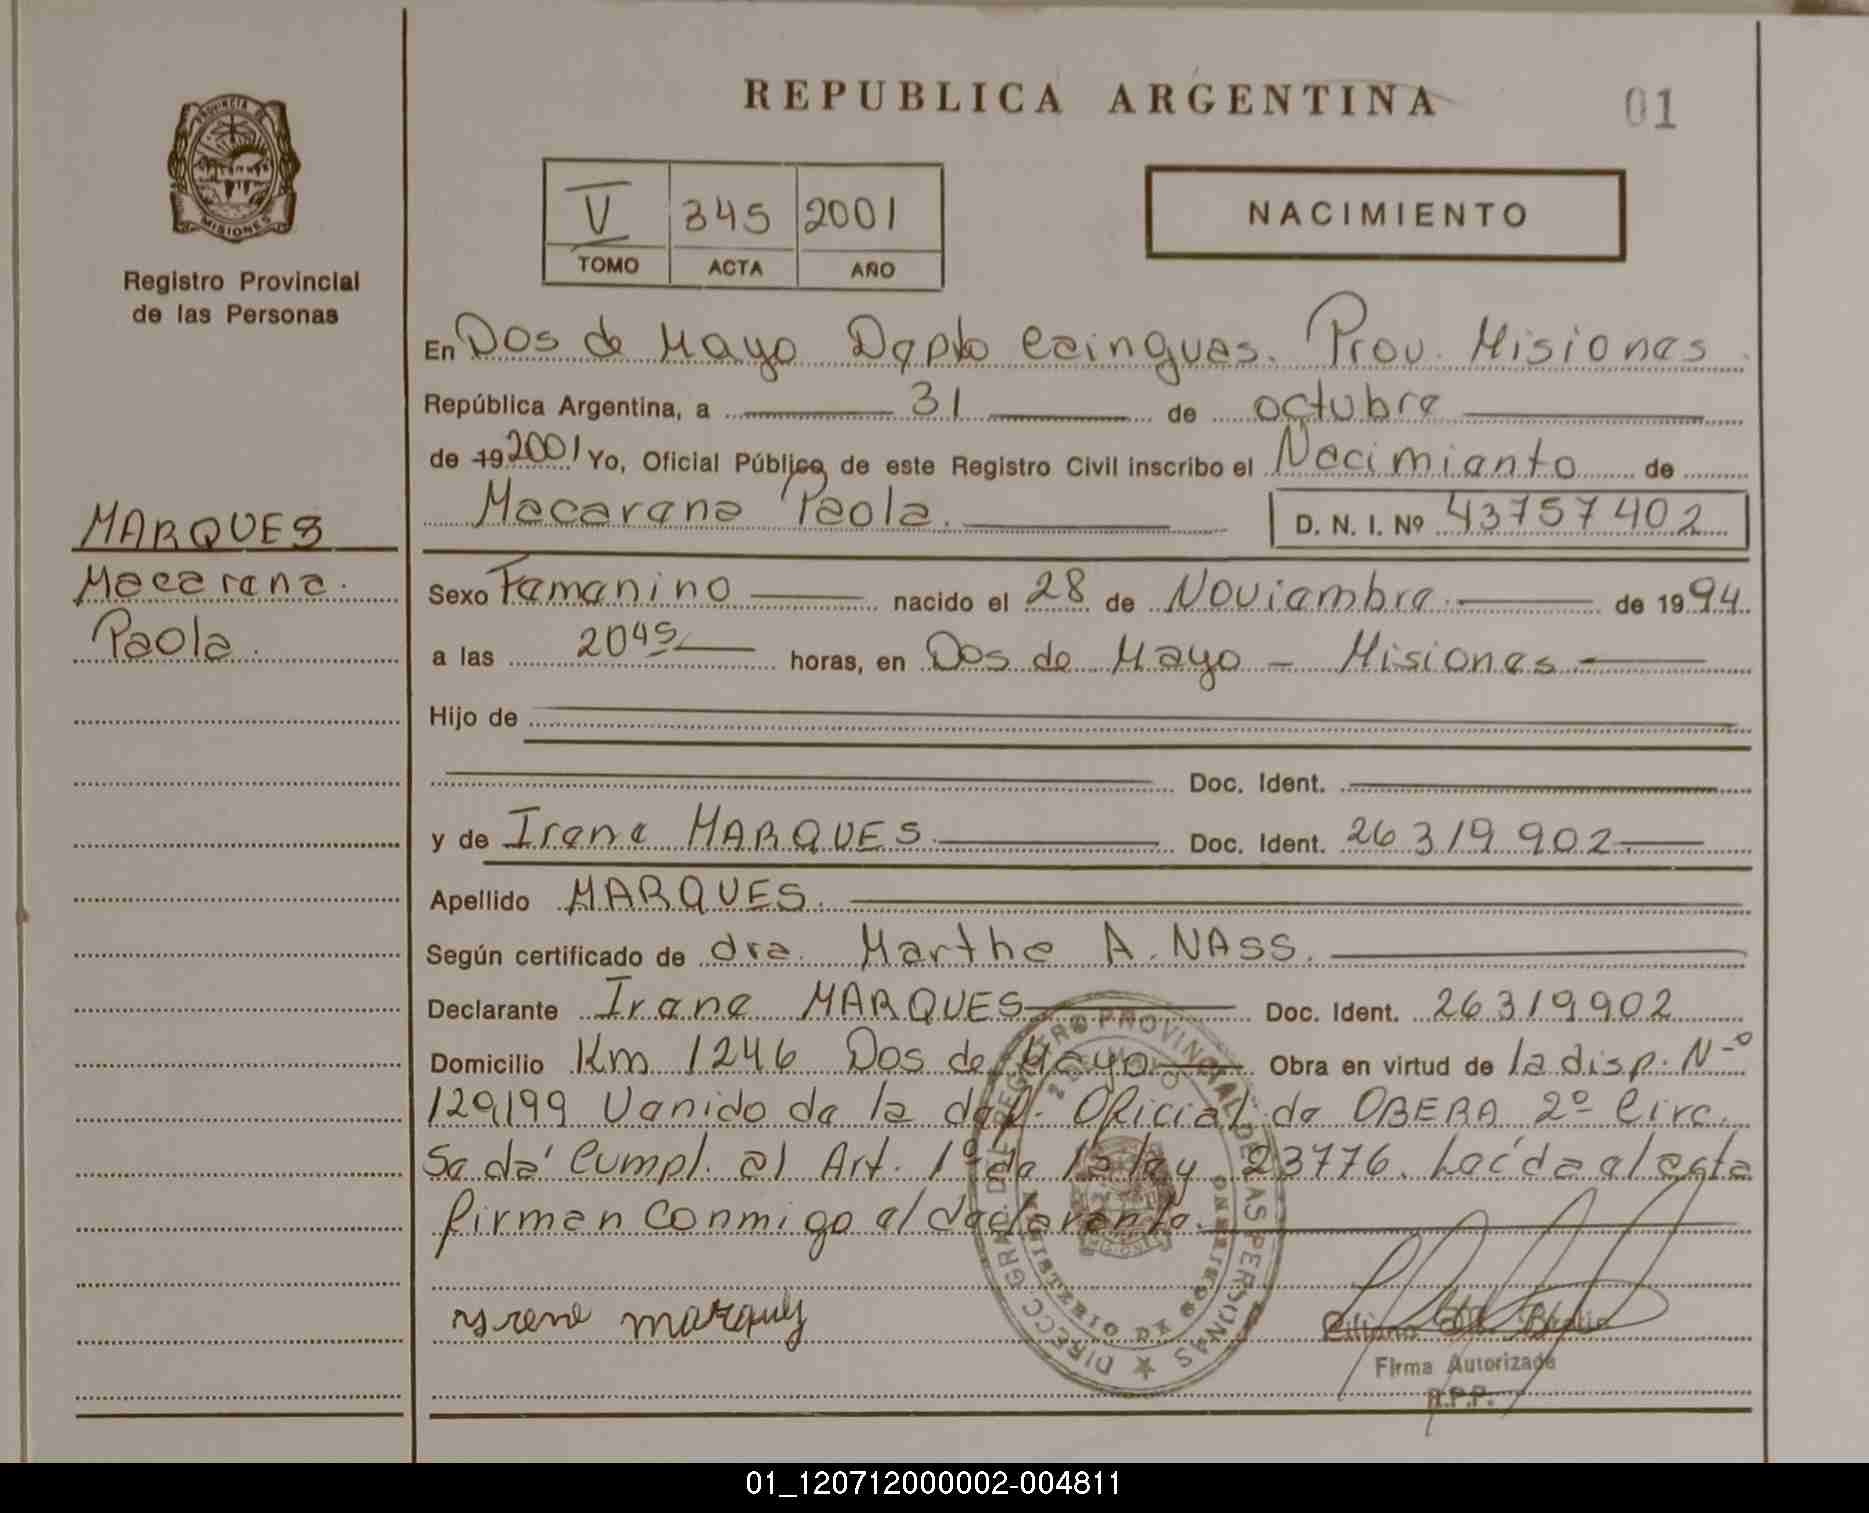 REPUBLICA ARGENTINA
01
PROVINCIA DE MISIONES
Registro Provincial
de las Personas
V 345 2001
TOMO ACTA AÑO
NACIMIENTO
En Dos de Mayo Dapto Cainguas. Prov. Misiones
República Argentina, a 31 de octubre
de 192001 Yo, Oficial Público de este Registro Civil inscribo el Nacimiento de
Macarena Paola. D. N. I. Nº 43757402
MARQUES
Macarena
Paola.
Sexo Femenino nacido el 28 de Noviembre de 1994
a las 2045 horas, en Dos de Mayo - Misiones
Hijo de
Doc. Ident.
y de Irene MARQUES Doc. Ident. 26319902
Apellido MARQUES.
Según certificado de dra. Marthe A. NASS.
Declarante Irene MARQUES Doc. Ident. 26319902
Domicilio Km 1246 Dos de Mayo Obra en virtud de la disp. Nº
129199 Venido de la del. Oficial de OBERA 2º Circ.
Se dá Cumpl. al Art. 1º de la ley 23776. Leída el acta
firman conmigo el declarante.
DIRECC. GRAL. DEL REGISTRO PROVINCIAL DE LAS PERSONAS
2 DE MAYO
MINISTERIO DE GOBIERNO
Irene marquez
Firma Autorizada
R.P.P.
01_120712000002-004811